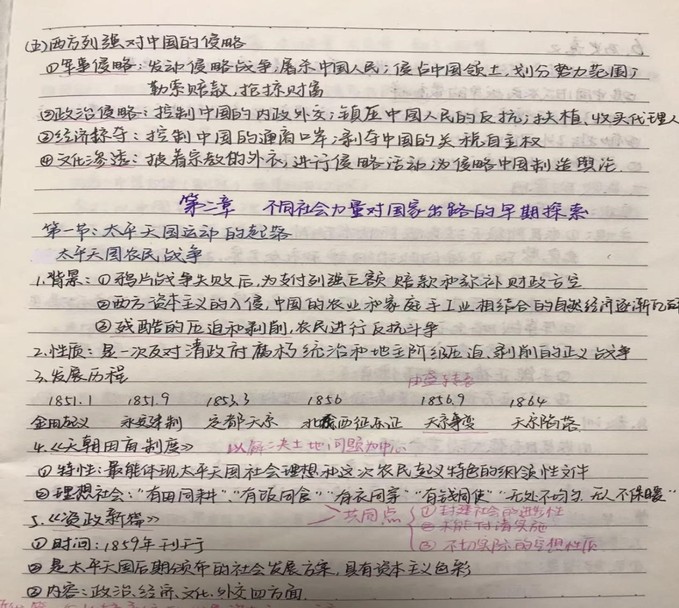 (五)西方列强对中国的侵略
①军事侵略：发动侵略战争，屠杀中国人民；侵占中国领土，划分势力范围；
勒索赔款，抢掠财富
②政治侵略：控制中国的内政外交；镇压中国人民的反抗；扶植、收买代理人
③经济掠夺：控制中国的通商口岸；剥夺中国的关税自主权
④文化渗透：披着宗教的外衣，进行侵略活动；为侵略中国制造舆论.
第二章 不同社会力量对国家出路的早期探索
第一节：太平天国运动的起落
太平天国农民战争
1.背景：①鸦片战争失败后，为支付列强巨额赔款和弥补财政亏空
②西方资本主义的入侵，中国的农业和家庭手工业相结合的自然经济逐渐
③残酷的压迫和剥削，农民进行反抗斗争
2.性质：是一次反对清政府腐朽统治和地主阶级压迫、剥削的正义战争
3.发展历程
1851.1 1851.9 1853.3 1856 1856.9 1864
金田起义 永安建制 定都天京 北伐西征东征 天京事变 天京陷落
4.《天朝田亩制度》 以解决土地问题为中心
①特性：最能体现太平天国社会理想和这次农民起义特色的纲领性文件
②理想社会："有田同耕"."有饭同食""有衣同穿""有钱同使""无处不均匀 无人不保暖"
5.《资政新篇》 共同点 ①封建社会的进步性
②未能付诸实施
①时间：1859年刊行 ③不切实际的空想性质
②是太平天国后期颁布的社会发展方案，具有资本主义色彩
③内容：政治、经济、文化、外交四方面.